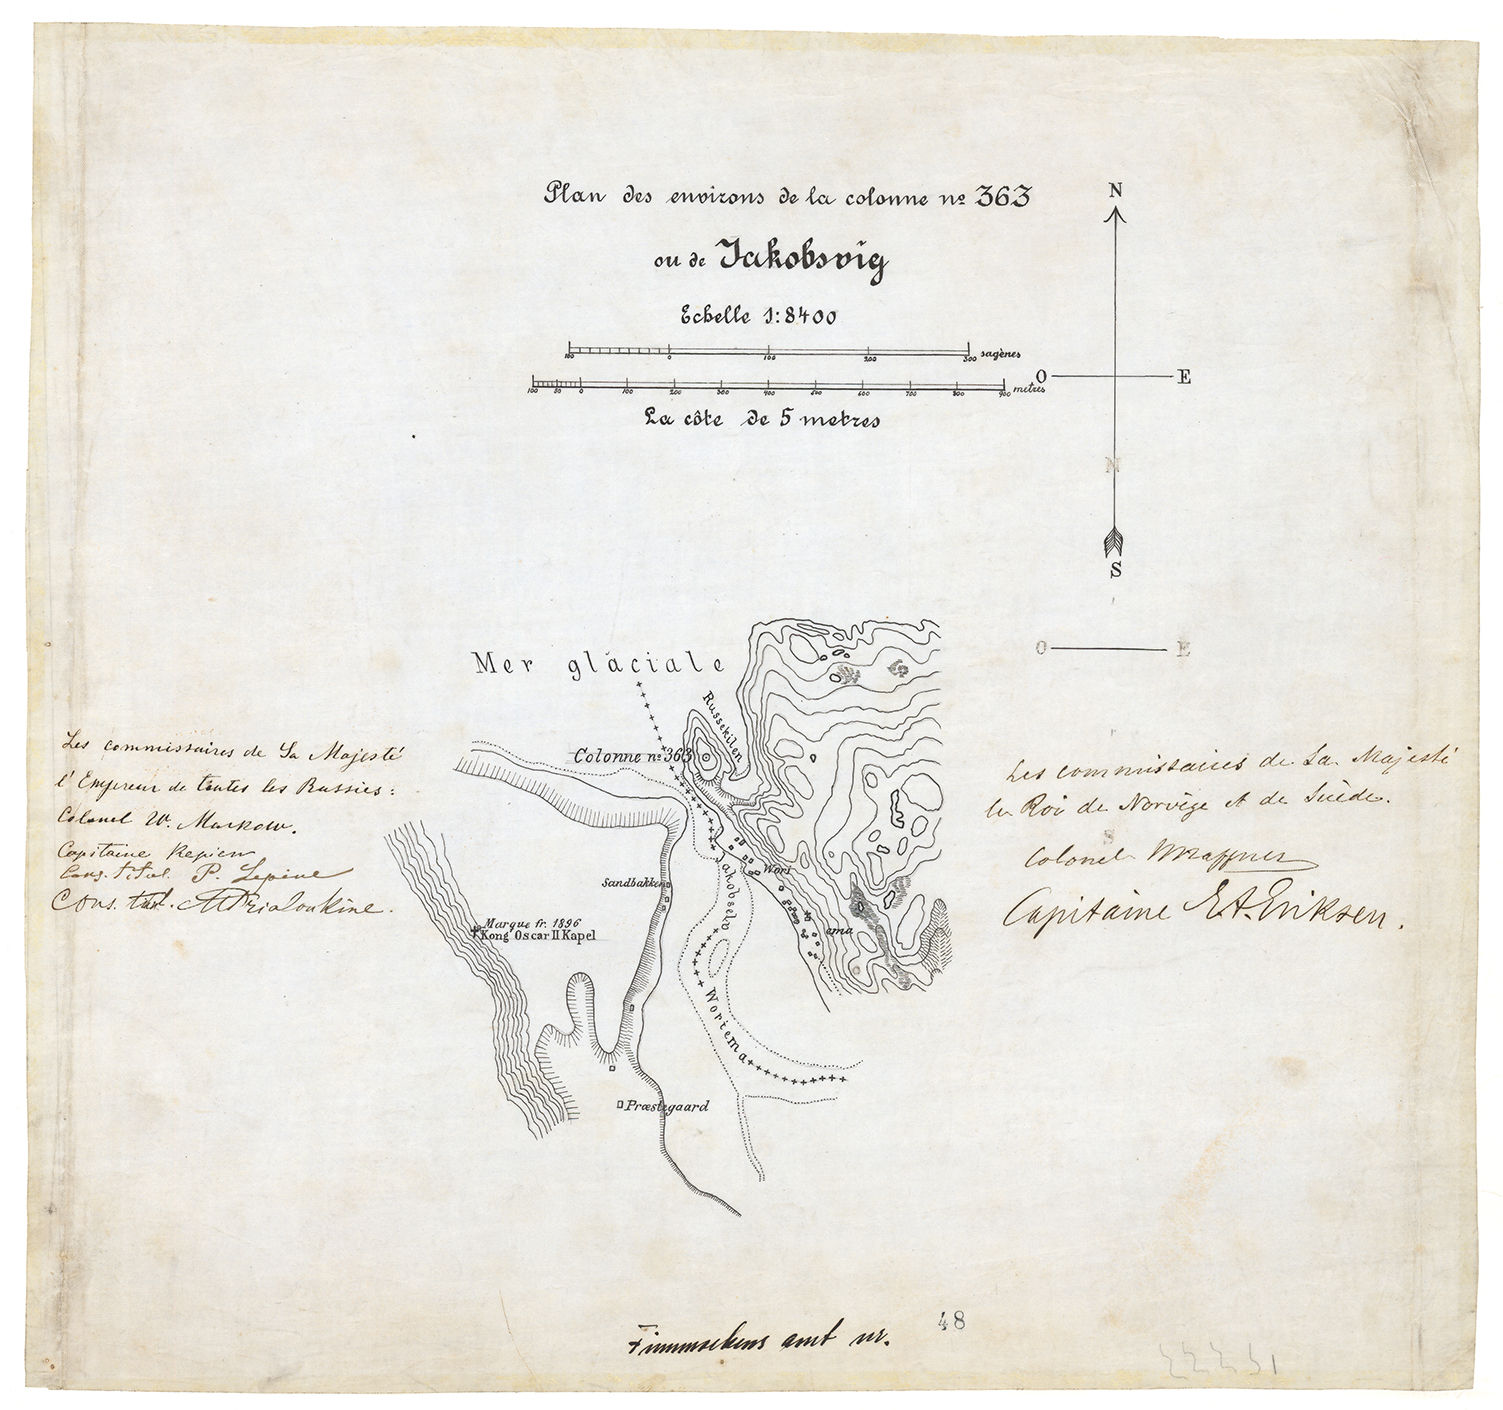 Plan des environs de la colonne nº 363
ou de Jakobsvig
Echelle 1:8400
100 0 100 200 300 sagènes
100 50 0 100 200 300 400 500 600 700 800 900 metres
La côte de 5 metres
N
O E
N
S
O E
Mer glaciale
Russekilen
Colonne nº 363
Les commissaires de Sa Majesté
l'Empereur de toutes les Russies:
Colonel W. Markow.
Capitaine Repiew
Cons. titul. P. Lepine
Cons. tit.
Les commissaires de Sa Majesté
le Roi de Norvège et de Suède.
S
Colonel
Capitaine E. A. Eriksen.
Jakobselv
Wori
ema
Sandbakken
Marque fr. 1896
Kong Oscar II Kapel
Woriema
Præstegaard
Finmarkens amt nr. 48